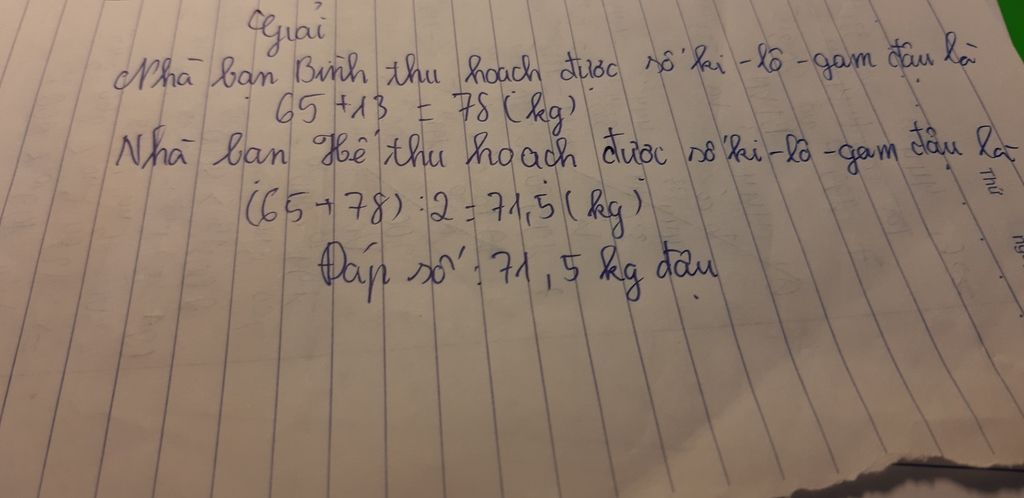 Giải
Nhà bạn Bình thu hoạch được số ki-lô-gam đậu là
65 + 13 = 78 (kg)
Nhà bạn Hê thu hoạch được số ki-lô-gam đậu là
(65 + 78) : 2 = 71,5 (kg)
Đáp số : 71,5 kg đậu